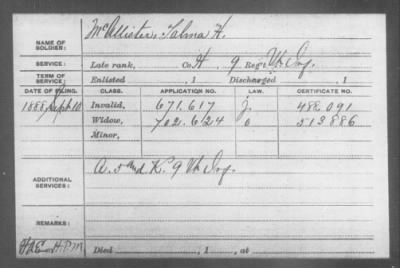 McAllister, Salma H.
NAME OF
SOLDIER:
SERVICE: Late rank, Co. H, 9 Reg't Vt. Inf.
TERM OF
SERVICE: Enlisted , 1 Discharged , 1
DATE OF FILING. CLASS. APPLICATION NO. LAW. CERTIFICATE NO.
1888 Sept 10 Invalid, 671.617 J. 482.091
Widow, 702.624 O 513886
Minor,
ADDITIONAL
SERVICES:
A. and K. 9 Vt Inf.
REMARKS:
Died , 1 , at